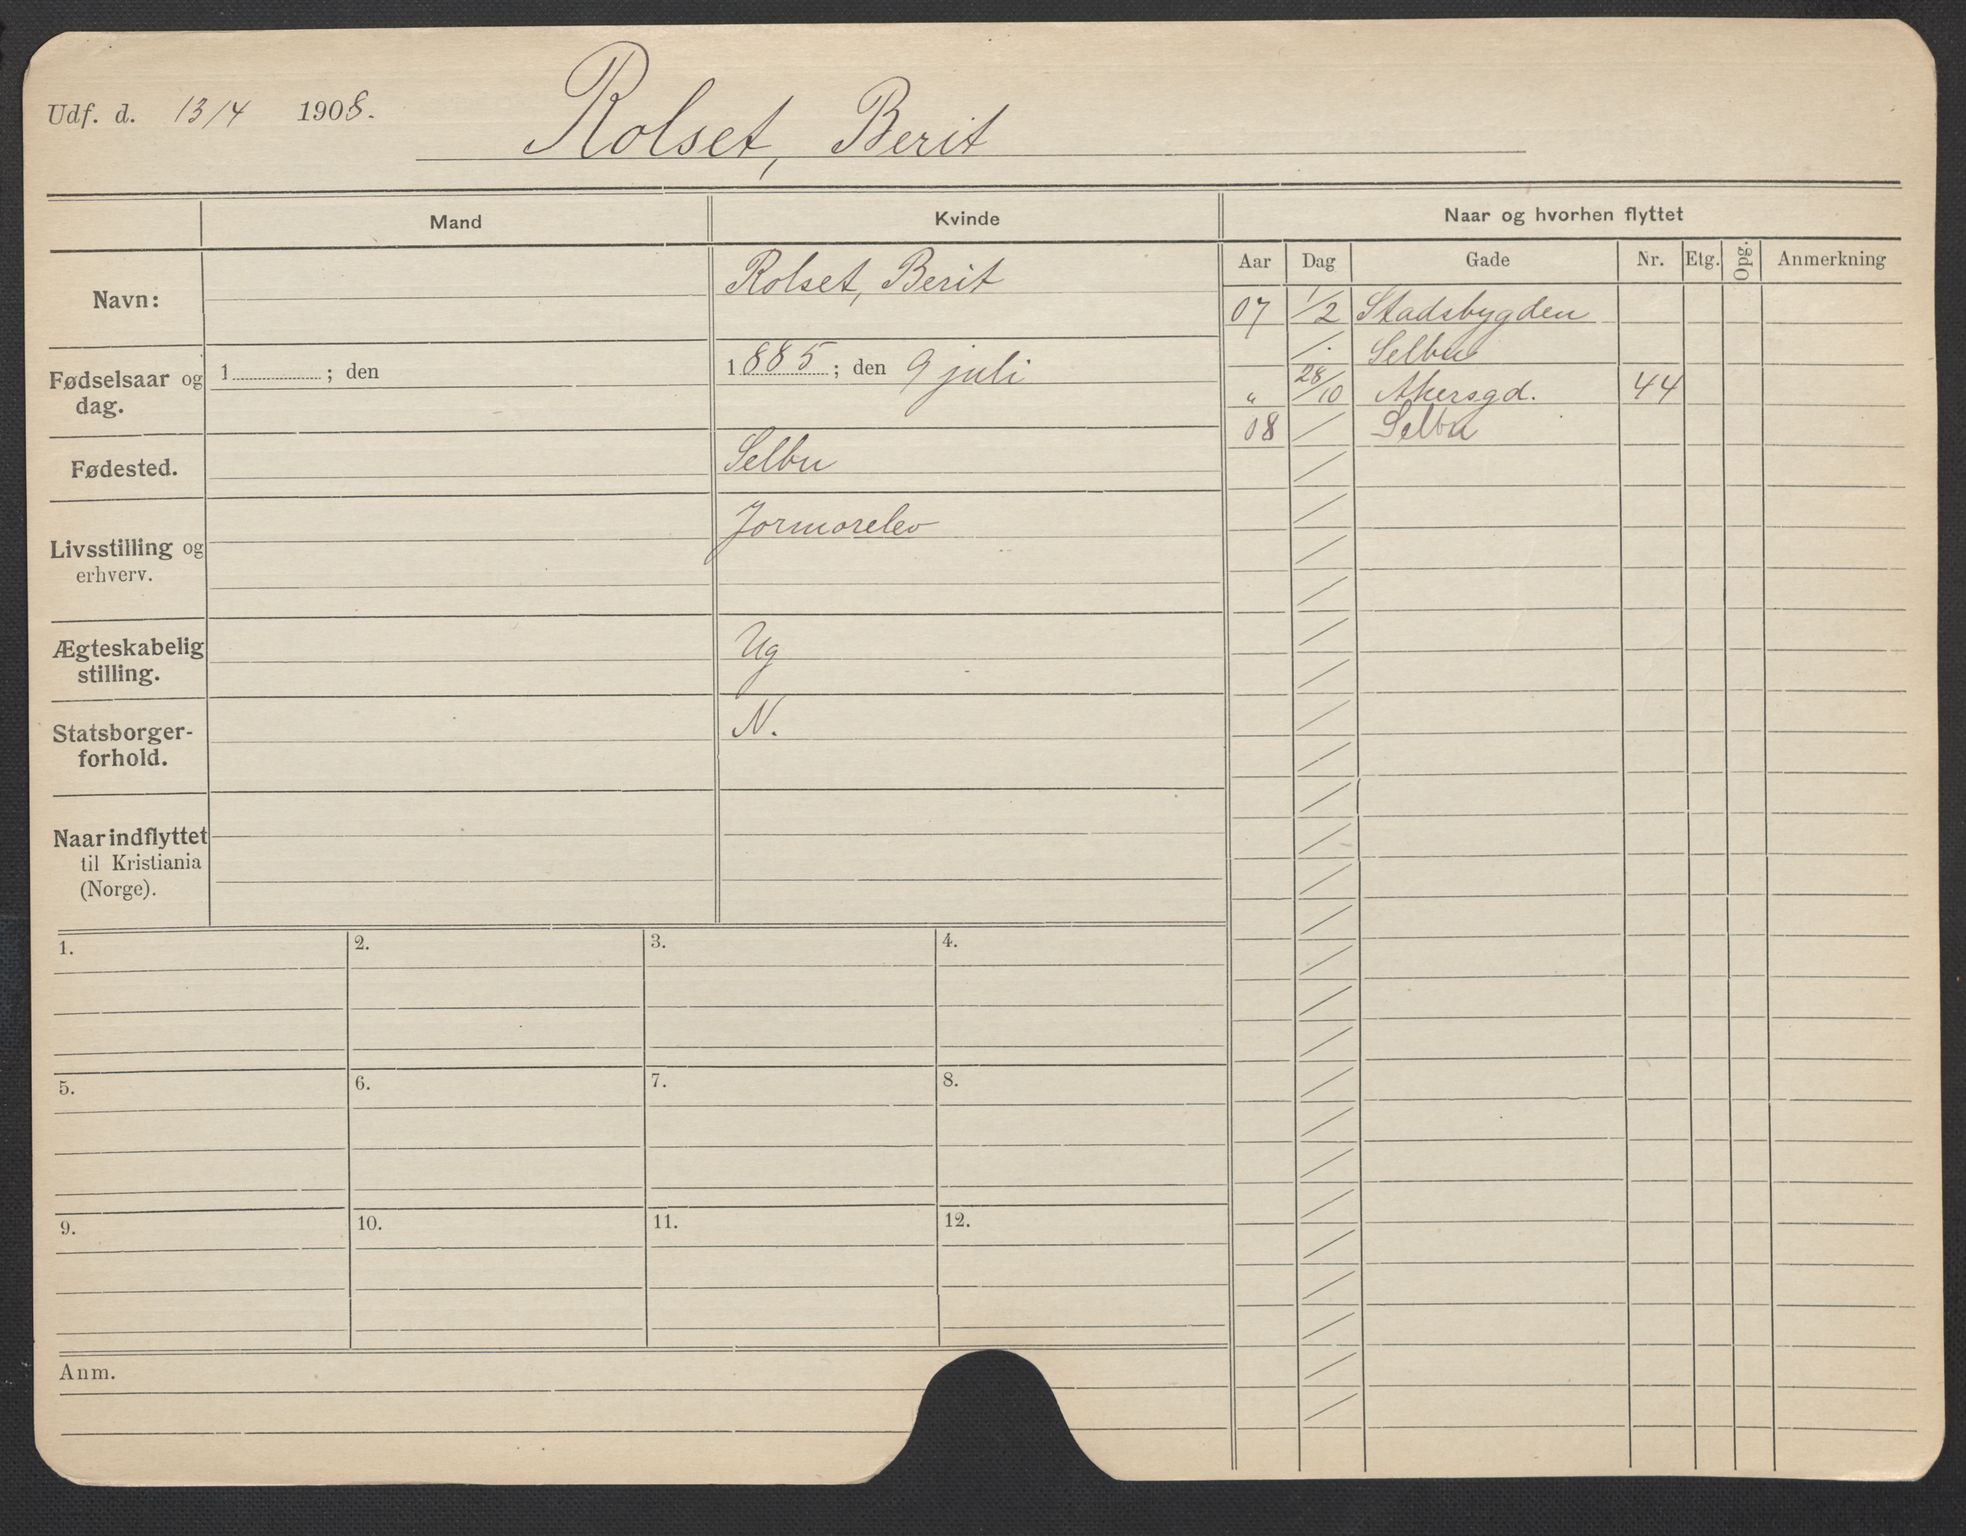 Udf. d. 13/4 1908.
Rolset, Berit
Mand
Kvinde
Naar og hvorhen flyttet
Aar Dag Gade Nr. Etg. Opg. Anmerkning
Navn:
Rolset, Berit
07 1/2 Stadsbygden
Selbu
" 28/10 Akersgd. 44
08 Selbu
Fødselsaar og
dag.
1 ; den
1885; den 9 juli
Fødested.
Selbu
Livsstilling og
erhverv.
Jormorelev
Ægteskabelig
stilling.
Ug
Statsborger-
forhold.
N.
Naar indflyttet
til Kristiania
(Norge).
1. 2. 3. 4.
5. 6. 7. 8.
9. 10. 11. 12.
Anm.